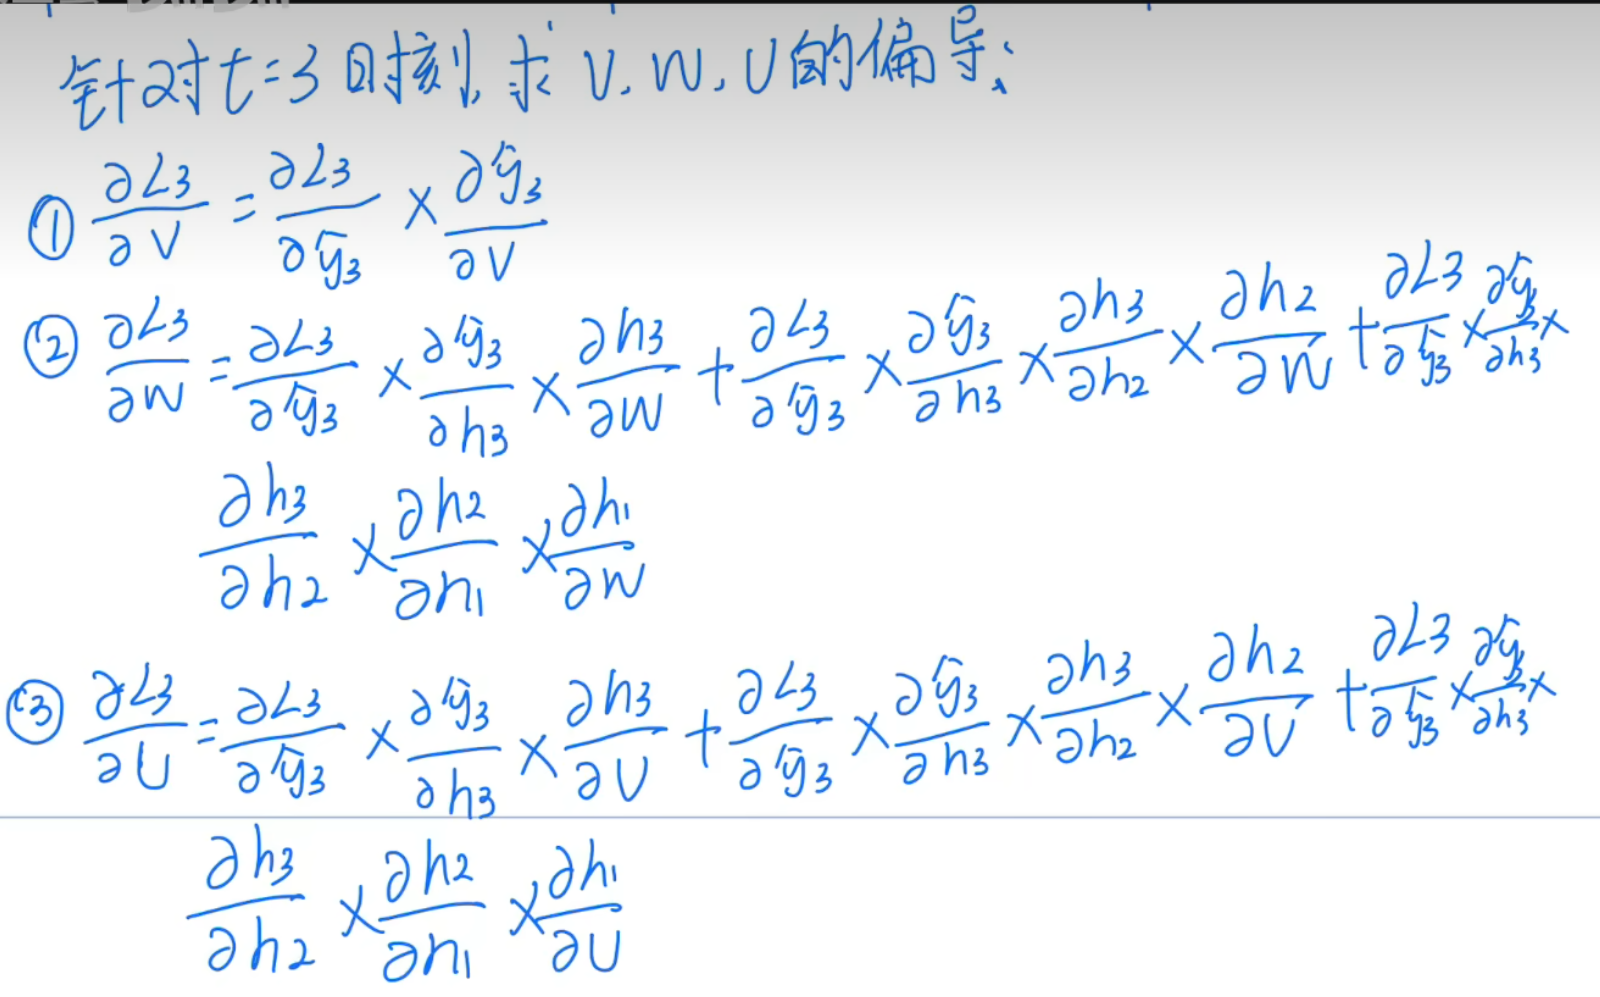 针对t=3时刻,求V,W,U的偏导:
① ∂L3/∂V = ∂L3/∂ŷ3 × ∂ŷ3/∂V
② ∂L3/∂W = ∂L3/∂ŷ3 × ∂ŷ3/∂h3 × ∂h3/∂W + ∂L3/∂ŷ3 × ∂ŷ3/∂h3 × ∂h3/∂h2 × ∂h2/∂W + ∂L3/∂ŷ3 × ∂ŷ3/∂h3 ×
∂h3/∂h2 × ∂h2/∂h1 × ∂h1/∂W
③ ∂L3/∂U = ∂L3/∂ŷ3 × ∂ŷ3/∂h3 × ∂h3/∂U + ∂L3/∂ŷ3 × ∂ŷ3/∂h3 × ∂h3/∂h2 × ∂h2/∂U + ∂L3/∂ŷ3 × ∂ŷ3/∂h3 ×
∂h3/∂h2 × ∂h2/∂h1 × ∂h1/∂U